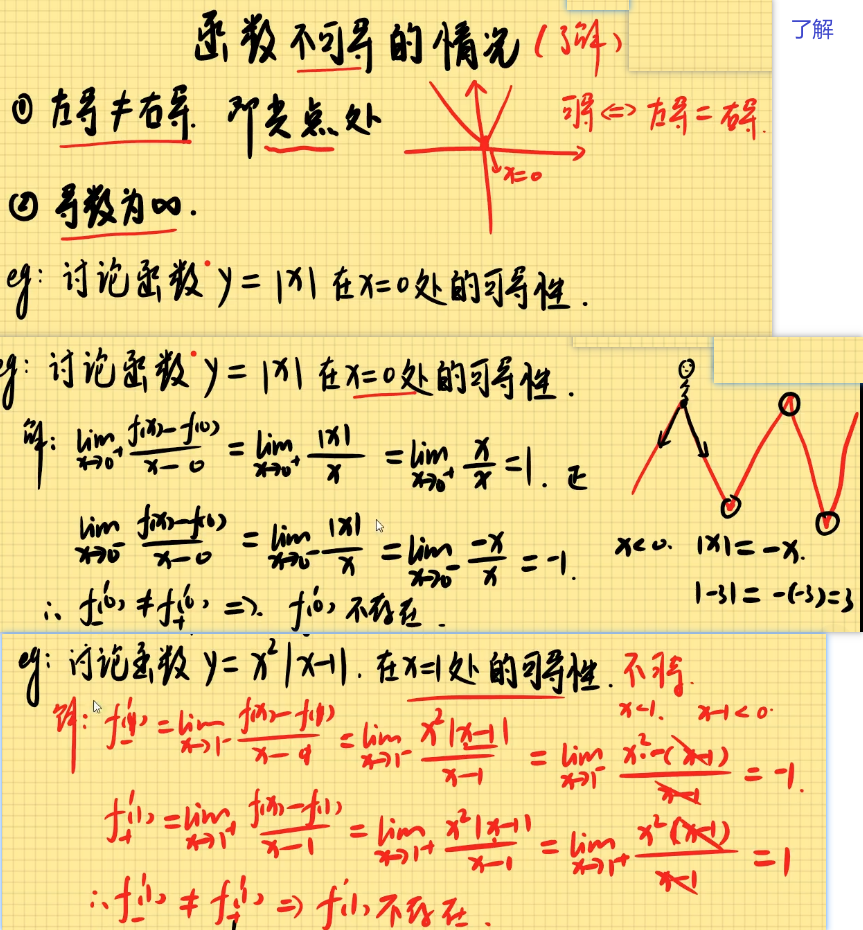 函数不可导的情况(了解)
了解
① 左导≠右导. 即尖点处
可导<=>左导=右导.
x=0
② 导数为∞.
eg: 讨论函数 y=|x| 在x=0处的可导性.
eg: 讨论函数 y=|x| 在x=0处的可导性.
解: lim x→0⁺ (f(x)-f(0))/(x-0) = lim x→0⁺ |x|/x = lim x→0⁺ x/x = 1. 正
lim x→0⁻ (f(x)-f(0))/(x-0) = lim x→0⁻ |x|/x = lim x→0⁻ -x/x = -1.
x<0. |x|=-x.
|-3|= -(-3)=3
∴ f₋'(0) ≠ f₊'(0) => f'(0) 不存在.
eg: 讨论函数 y=x²|x-1|. 在x=1处的可导性. 不可导.
x<1. x-1<0.
解: f₋'(1) = lim x→1⁻ (f(x)-f(1))/(x-1) = lim x→1⁻ x²|x-1|/(x-1) = lim x→1⁻ x²·-(x-1)/(x-1) = -1.
f₊'(1) = lim x→1⁺ (f(x)-f(1))/(x-1) = lim x→1⁺ x²|x-1|/(x-1) = lim x→1⁺ x²(x-1)/(x-1) = 1
∴ f₋'(1) ≠ f₊'(1) => f'(1) 不存在.